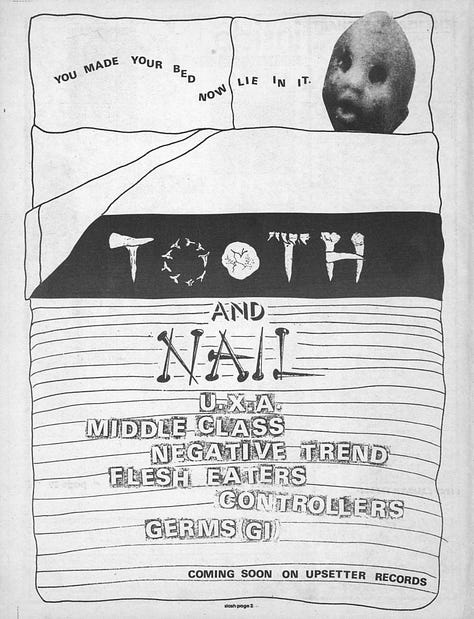 YOU MADE YOUR BED
NOW LIE IN IT.
TOOTH
AND
NAIL
U.X.A.
MIDDLE CLASS
NEGATIVE TREND
FLESH EATERS
CONTROLLERS
GERMS GI
COMING SOON ON UPSETTER RECORDS
slash page 2